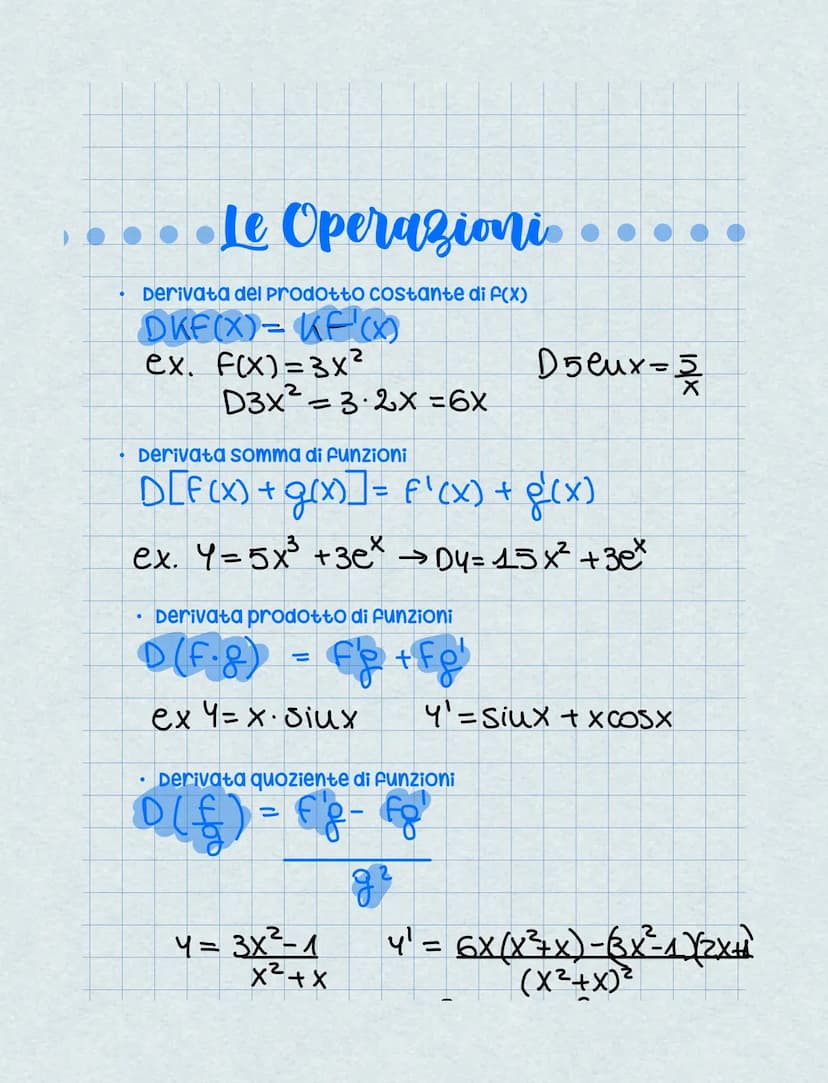 Le Operazioni
• Derivata del prodotto costante di f(x)
DKF(X) = KF'(X)
ex. F(X) = 3x²
D5lnx = 5/x
D3x² = 3·2x = 6x
• Derivata somma di funzioni
D[F(X) + g(x)] = F'(X) + g'(x)
ex. Y = 5x³ + 3eˣ → Dy = 15x² + 3eˣ
• Derivata prodotto di funzioni
D(F·g) = F'g + Fg'
ex Y = x·sinx Y' = sinx + xcosx
• Derivata quoziente di funzioni
D(f/g) = F'g - Fg' / g²
y = 3x²-1 / x²+x y' = 6x(x²+x)-(3x²-1)(2x+1) / (x²+x)²